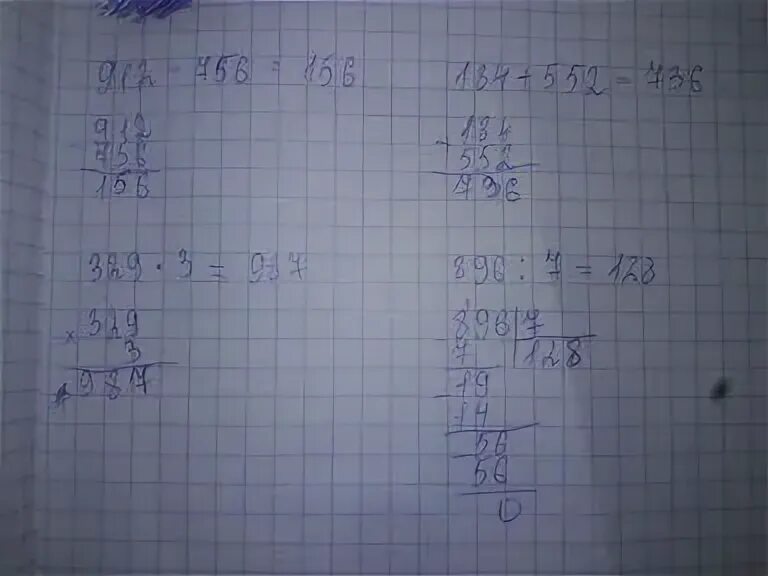 912 - 756 = 156
912
756
156
134 + 552 = 736
134
552
736
329 · 3 = 987
× 329
3
987
896 : 7 = 128
896 7
7 128
19
14
56
56
0